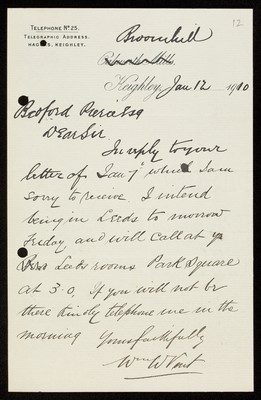 12
TELEPHONE Nº 25.
TELEGRAPHIC ADDRESS.
KEIGHLEY.
Broomhill
Keighley, Jan 12 1910
Bedford Pierce Esq
Dear Sir
In reply to your
letter of Jan 7th which I am
sorry to receive. I intend
being in Leeds to morrow
Friday, and will call at yr
Leeds rooms Park Square
at 3-0. If you will not be
there kindly telephone me in the
morning Yours faithfully
Wm W